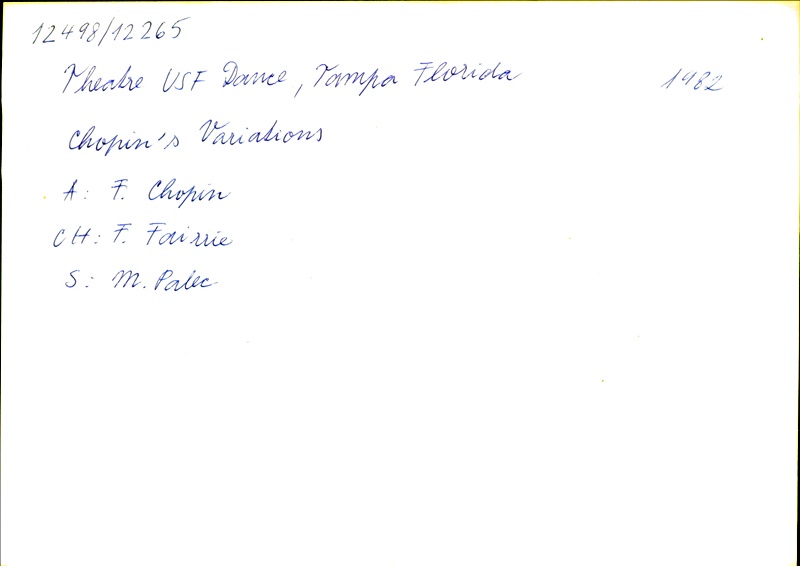 12498/12265
Theatre USF Dance, Tampa Florida 1982
Chopin's Variations
A: F. Chopin
CH: F. Fairrie
S: M. Palec